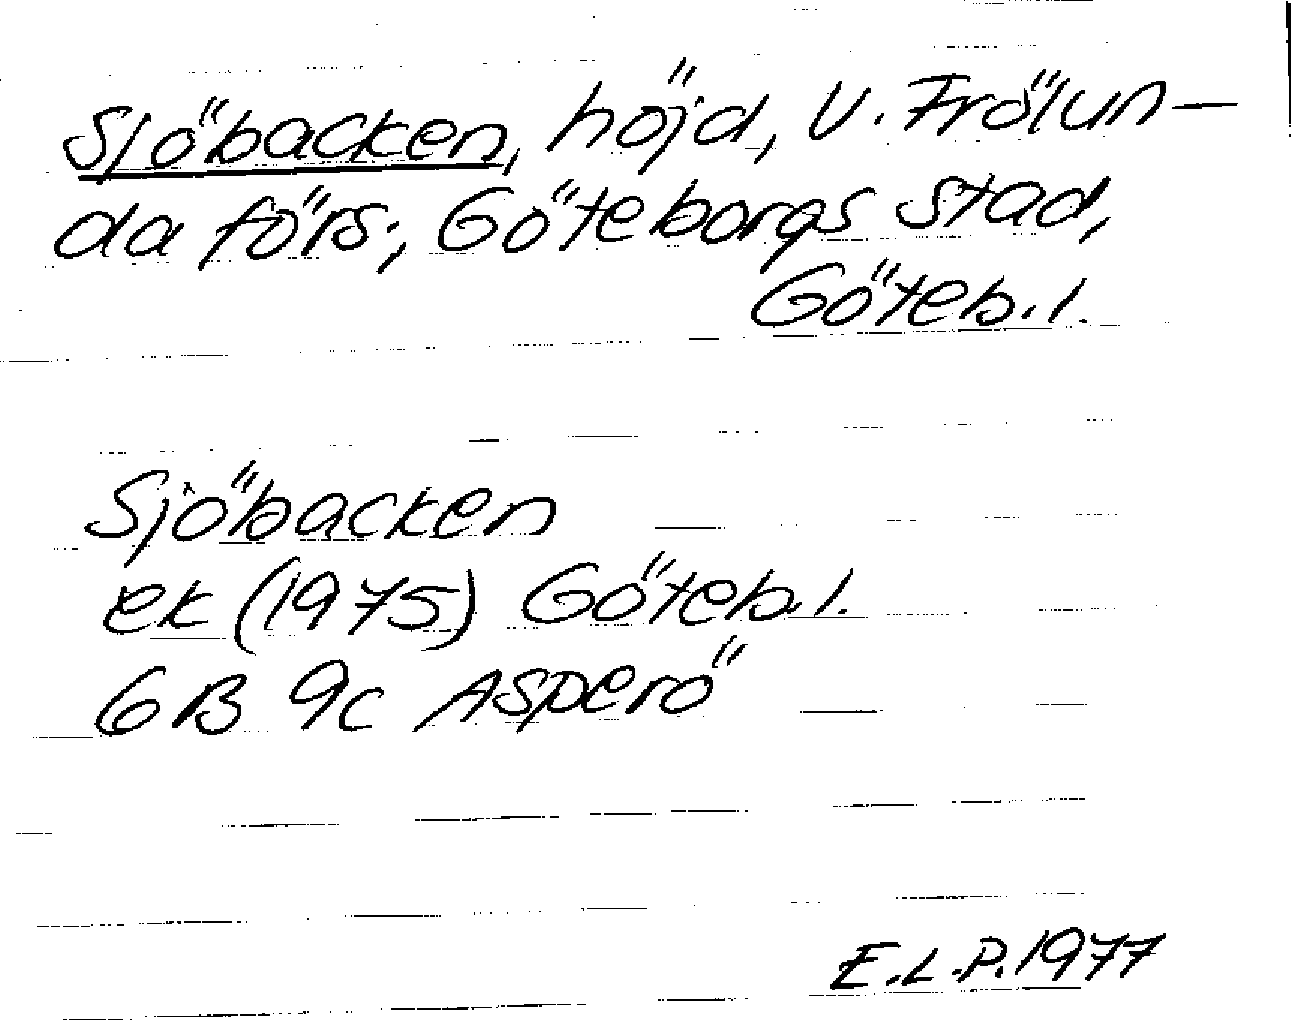 Sjöbacken, höjd, V. Frölun-
da förs., Göteborgs stad,
Göteb. l.
Sjöbacken
ek (1975) Göteb. l.
6B 9c Asperö
E.L.P. 1977